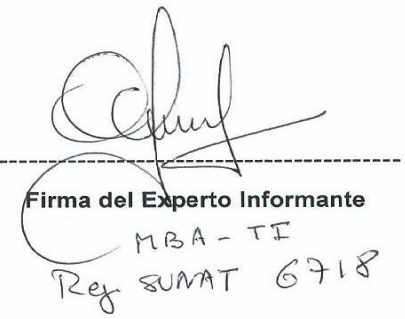 Firma del Experto Informante
MBA - TI
Reg. SUNAT 6718